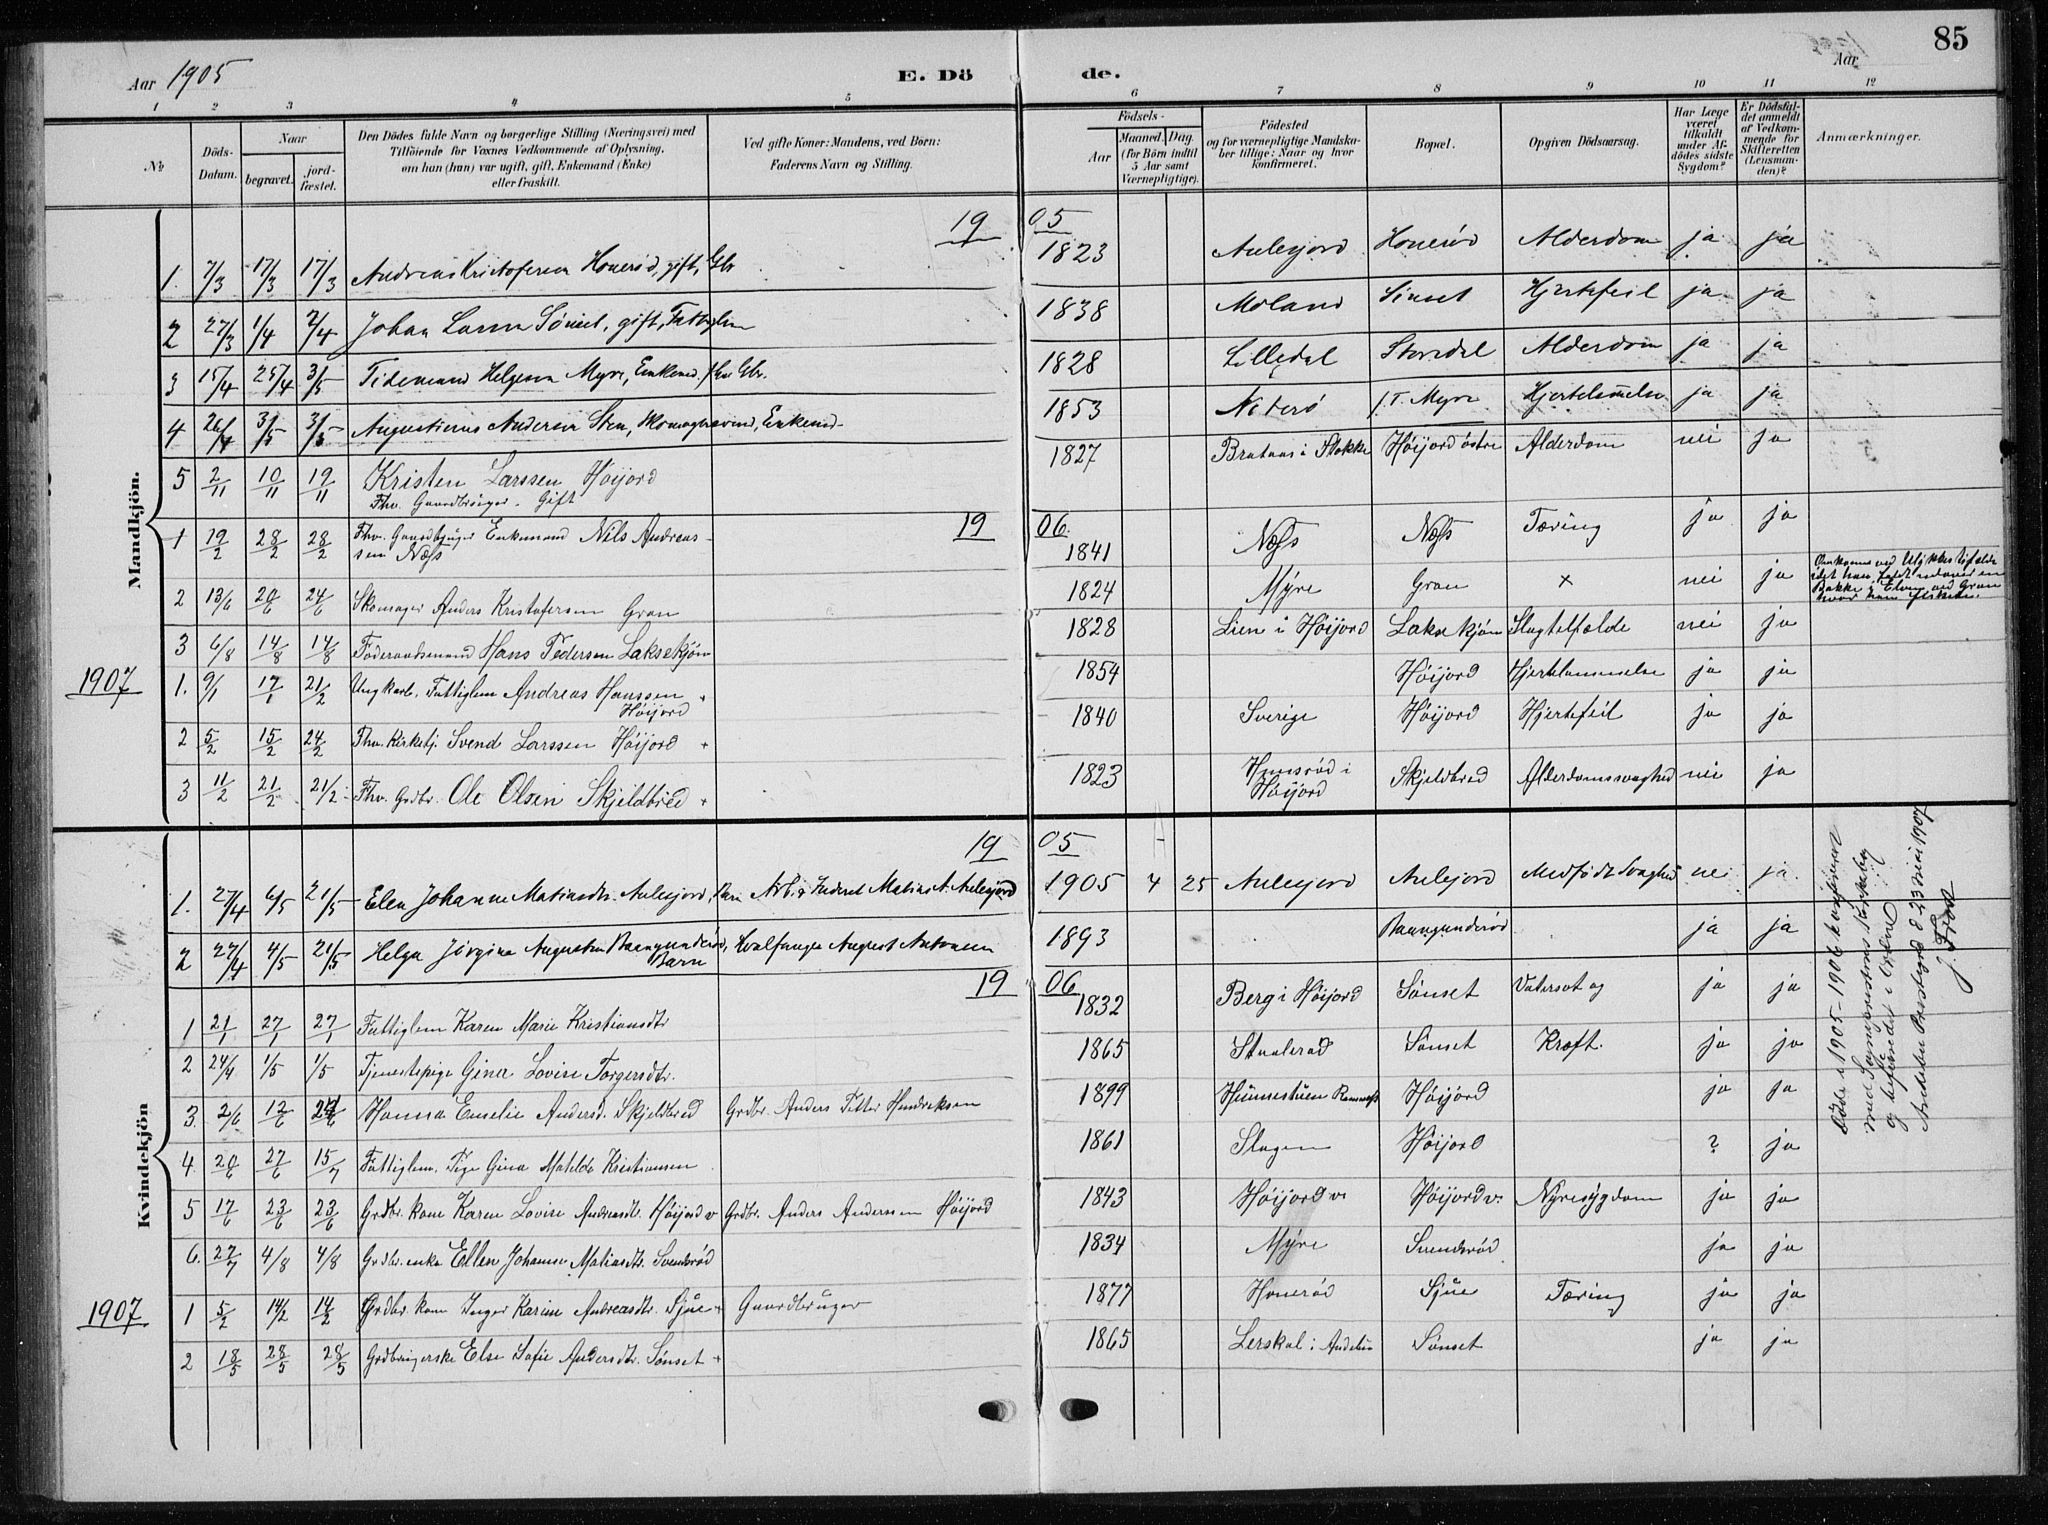 Aar 1905
E. Döde.
Aar
85
1 2 3 4 5 6 7 8 9 10 11 12
No
Döds-Datum.
Naar
begravet.
jord-fæstet.
Den Dödes fulde Navn og borgerlige Stilling (Næringsvei) med
Tilföiende for Voxnes Vedkommende af Oplysning,
om han (hun) var ugift, gift, Enkemand (Enke)
eller fraskilt.
Ved gifte Koner: Mandens, ved Börn:
Faderens Navn og Stilling.
Födsels-
Aar
Maaned. Dag.
(for Börn indtil
5 Aar samt
Værnepligtige).
Födested
og for værnepligtige Mandska-
ber tillige: Naar og hvor
konfirmeret.
Bopæl.
Opgiven Dödsaarsag.
Har Læge
været
tilkaldt
under Af-
dödes sidste
Sygdom?
Er Dödsfal-
det anmeldt
af Vedkom-
mende for
Skifteretten
(Lensman-
den)?
Anmærkninger.
Mandkjön.
1905
1. 7/3 17/3 17/3 Andreas Kristofersen Honeröd, gift, Gbr 1823 Aulesjord Honeröd Alderdom ja ja
2 27/3 1/4 2/4 Johan Larsen Sönset, gift, Fattiglem 1838 Moland Sönset Hjertefeil ja ja
3 15/4 25/4 3/5 Tidemand Helgesen Myre, Enkemd. fhv Gbr. 1828 Lilledal Storedal Alderdom ja ja
4 26/4 3/5 3/5 Augustinus Andersen Sten, Skomagersvend, Enkemd 1853 Nöterö f.T. Myre Hjertelammelse ja ja
5 2/11 10/11 19/11 Kristen Larssen Höijord 1827 Brataas i Stokke Höijord östre Alderdom nei ja
Fhv. Gaardbruger. Gift
1906
1 19/2 28/2 28/2 Fhv. Gaardbruger Enkemand Nils Andreas- 1841 Næss Næss Tæring ja ja
sen Næss
2 13/6 20/6 24/6 Skomager Anders Kristofersen Gran 1824 Myre Gran × nei ja
Omkomne ved Ulykkestilfælde
idet han faldt udover en
Bakke i Elven ved Gran
hvor han fiskede.
3 6/8 14/8 14/8 Föderaadsmand Hans Pedersen Laksekjön 1828 Lien i Höijord Laksekjön Slagtilfælde nei ja
1907
1. 9/1 17/1 21/2 Ungkarl. Fattiglem Andreas Hanssen + 1854 Höijord Hjertelammelse ja ja
Höijord
2 5/2 15/2 24/2 Fhv. Kirketj. Svend Larssen Höijord + 1840 Sverige Höijord Hjertefeil ja ja
3 11/2 21/2 21/2 Fhv. Grdbr. Ole Olsen Skjeldbred + 1823 Hunsröd i Höijord Skjeldbred Alderdomssvaghed nei ja
Kvindekjön
1905
1. 27/4 6/5 21/5 Elen Johanne Matiasdtr. Aulesjord, Barn Arb. Matias A. Aulesjord 1905 4 25 Aulesjord Aulesjord Medfödt Svaghed nei ja.
2 27/4 4/5 21/5 Helga Jörgine Augustsen Raangunderöd, Hvalfanger August Antonsen 1893 Raangunderöd ja ja
Barn
1906
1 21/1 27/1 27/1 Fattiglem Karen Marie Kristiansdtr 1832 Berg i Höijord Sönset Vatersot og ja ja
2 24/4 1/5 1/5 Tjenestepige Gina Lovise Torgersdtr. 1865 Staaleröd Sönset Kræft. ja ja
3. 2/6 12/6 24/6 Hanna Emelie Andersd. Skjeldbred Grdbr. Anders Petter Hendriksen 1899 Hunnestuen Ramnæs Höijord ja ja
4 20/6 27/6 15/7 Fattiglem. Pige Gina Matilde Kristiansen 1861 Slagen Höijord ? ja
5 17/6 23/6 23/6 Grdbr. kone Karen Lovise Andreasdtr. Höijord v Grdbr. Anders Anderssen Höijord 1843 Höijord v. Höijord v. Nyresygdom ja ja
6. 27/7 4/8 4/8 Grdbr. enke Ellen Johanne Matiasdtr. Svenderöd 1834 Myre Svenderöd ja ja
1907
1 5/2 14/2 14/2 Grdbr. kone Inger Karine Andreasdtr. Sjue + Gaardbruger 1877 Honeröd Sjue Tæring ja ja
2 18/5 28/5 28/5 Grdbrugerske Else Sofie Andersdtr. Sönset + 1865 Lerskal i Andebu Sönset ja ja
Döde i 1905-1906 konfereret
med Sognepræstens Kirkebog
og befundet i Orden.
Andebu Præstegård d. 23 Mai 1907
J. Frost